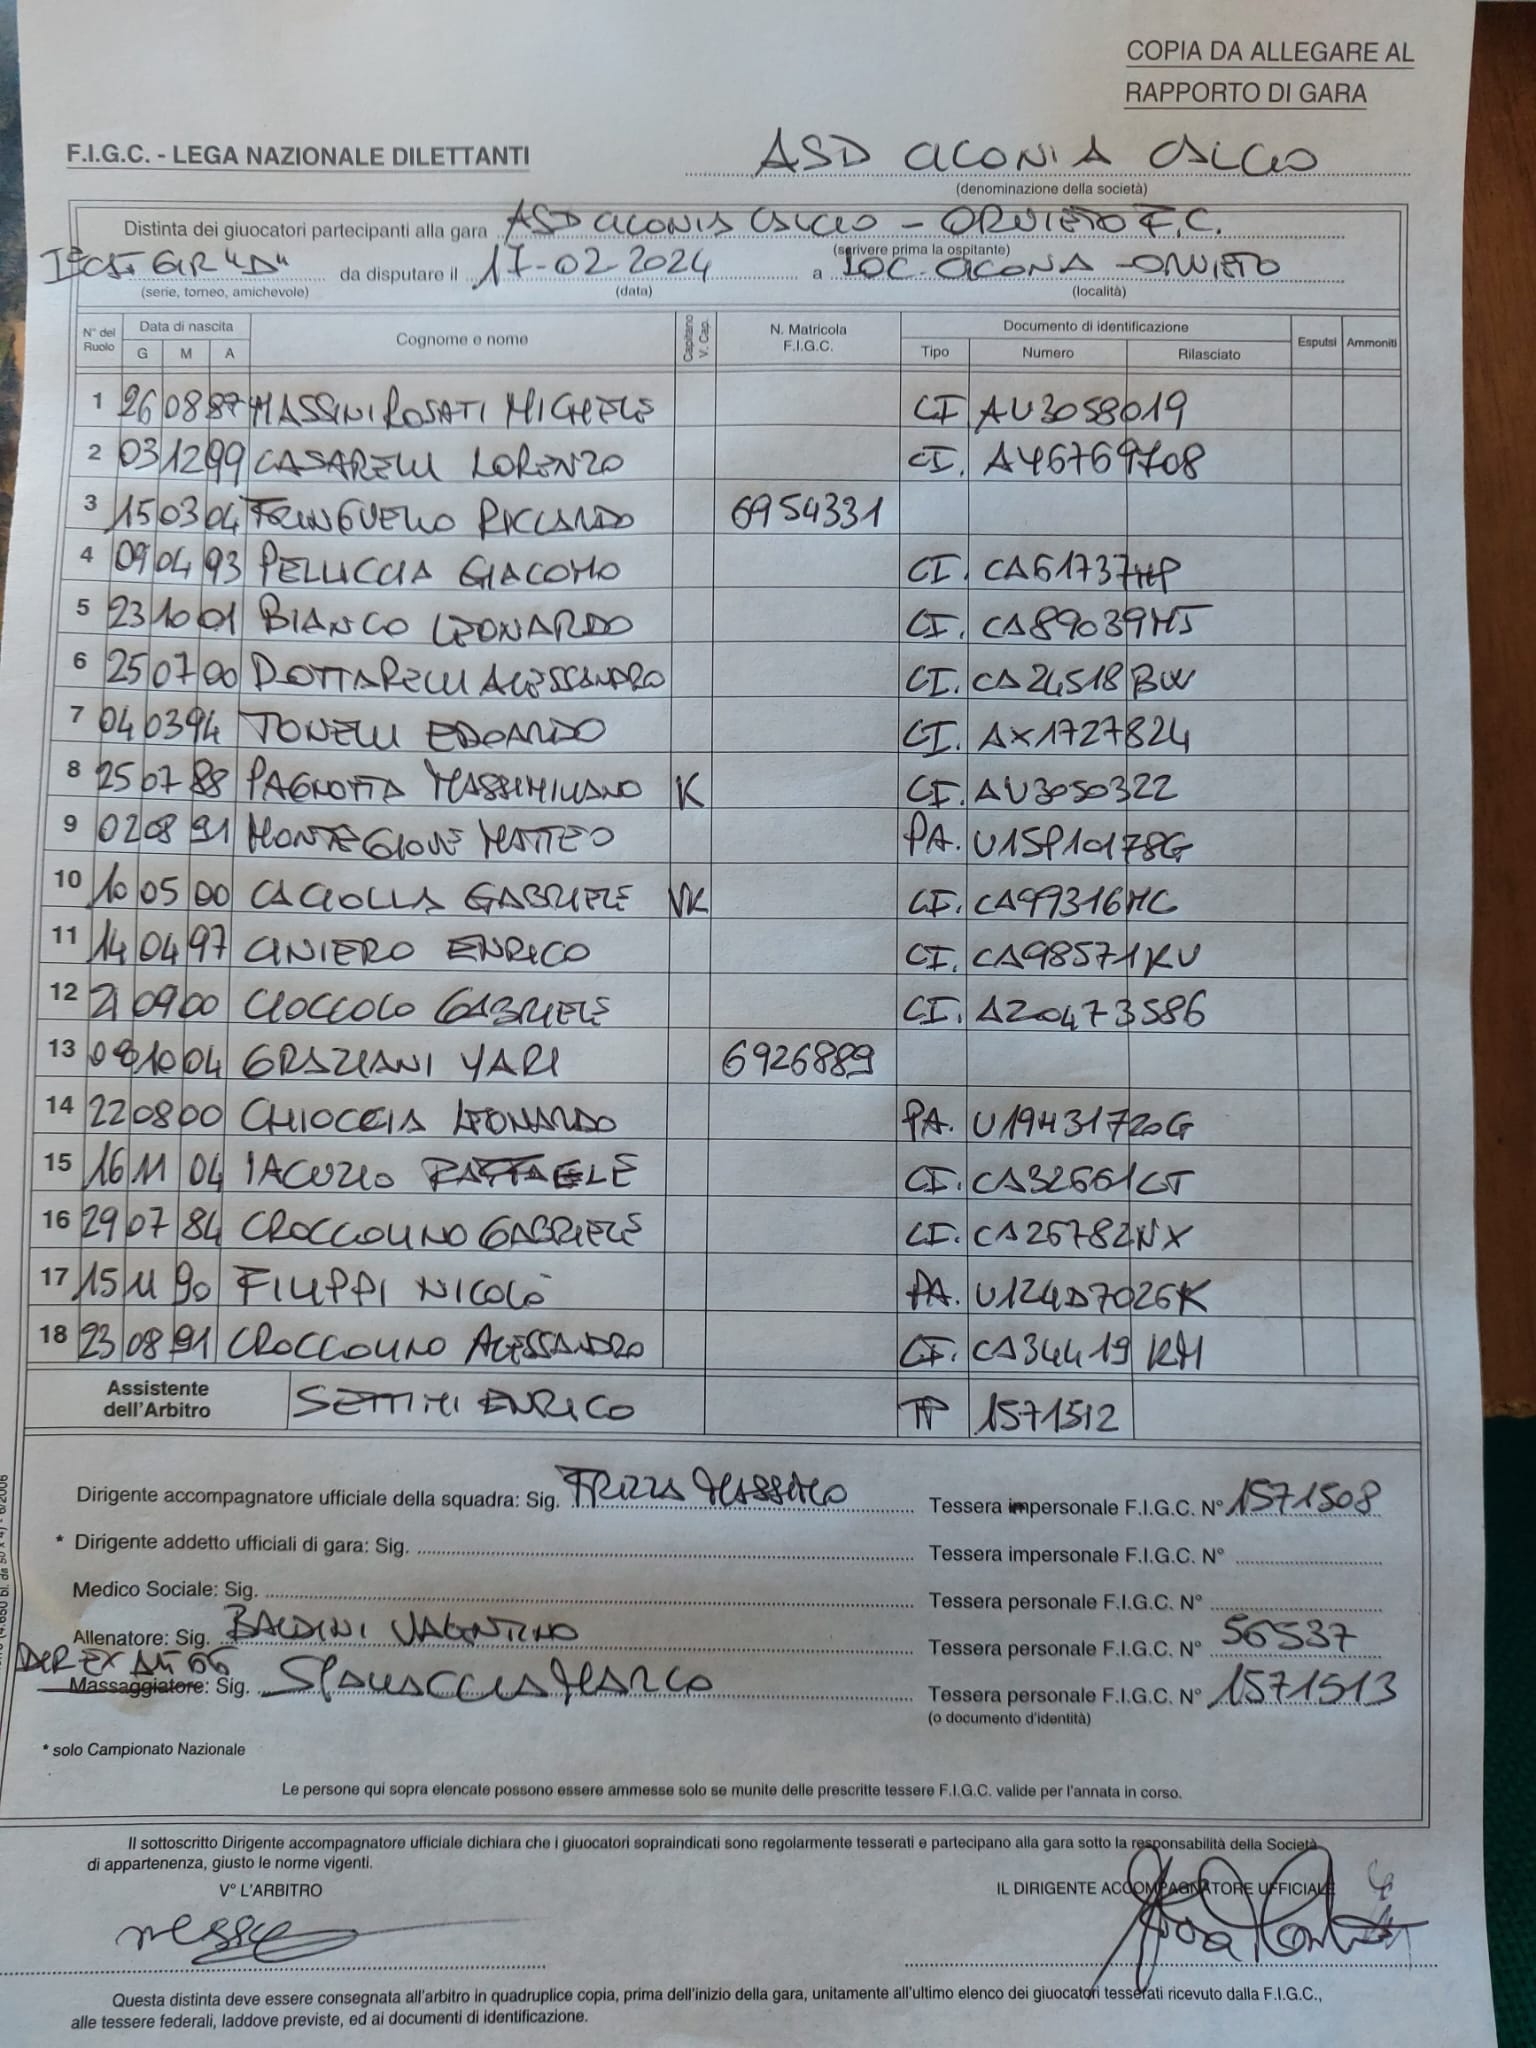 COPIA DA ALLEGARE AL
RAPPORTO DI GARA
F.I.G.C. - LEGA NAZIONALE DILETTANTI
ASD CICONIA CALCIO
(denominazione della società)
Distinta dei giuocatori partecipanti alla gara ASD CICONIA CALCIO - ORVIETO F.C.
(scrivere prima la ospitante)
GIR "D" da disputare il 17-02-2024 a LOC. CICONIA - ORVIETO
(serie, torneo, amichevole) (data) (località)
N° del Ruolo Data di nascita G M A Cognome e nome Capitano V. Cap. N. Matricola F.I.G.C. Documento di identificazione Tipo Numero Rilasciato Espulsi Ammoniti
1 26 08 87 MASSINI ROSATI MICHELE CI AU3058019
2 03 12 99 CASARELLI LORENZO CI. AY6769708
3 15 03 04 FRINGUELLO RICCARDO 6954331
4 09 04 93 PELUCCIA GIACOMO CI. CA61737HP
5 23 10 01 BIANCO LEONARDO CI. CA89039MJ
6 25 07 00 DOTTARELLI ALESSANDRO CI. CA24518BW
7 04 03 94 TONELLI EDOARDO CI. AX1727824
8 25 07 88 PAGNOTTA MASSIMILIANO K CI. AU3050322
9 02 08 91 MONTEGIOVE MATTEO PA. U15P10178G
10 10 05 00 CACIOLLA GABRIELE VK CI. CA99316MC
11 14 04 97 CINIERO ENRICO CI. CA98571KU
12 21 09 00 CIOCCOLO GABRIELE CI. AZ0473586
13 08 10 04 GRAZIANI YARI 6926889
14 22 08 00 CHIOCCIA LEONARDO PA. U19H31720G
15 16 11 04 IACUZIO RAFFAELE CI. CA32661CT
16 29 07 84 CROCCOLINO GABRIELE CI. CA26782NX
17 15 11 90 FILIPPI NICOLÒ PA. U124D7026K
18 23 08 91 CROCCOLINO ALESSANDRO CI. CA34419KM
Assistente dell'Arbitro SETTIMI ENRICO TP 1571512
Dirigente accompagnatore ufficiale della squadra: Sig. FRIZZA MASSIMO Tessera impersonale F.I.G.C. N° 1571508
* Dirigente addetto ufficiali di gara: Sig. Tessera impersonale F.I.G.C. N°
Medico Sociale: Sig. Tessera personale F.I.G.C. N°
Allenatore: Sig. BALDINI VALENTINO Tessera personale F.I.G.C. N° 56537
DIR EX ART 66
Massaggiatore: Sig. SPACCIA MARCO Tessera personale F.I.G.C. N° 1571513
(o documento d'identità)
* solo Campionato Nazionale
Le persone qui sopra elencate possono essere ammesse solo se munite delle prescritte tessere F.I.G.C. valide per l'annata in corso.
Il sottoscritto Dirigente accompagnatore ufficiale dichiara che i giuocatori sopraindicati sono regolarmente tesserati e partecipano alla gara sotto la responsabilità della Società
di appartenenza, giusto le norme vigenti.
V° L'ARBITRO IL DIRIGENTE ACCOMPAGNATORE UFFICIALE
Questa distinta deve essere consegnata all'arbitro in quadruplice copia, prima dell'inizio della gara, unitamente all'ultimo elenco dei giuocatori tesserati ricevuto dalla F.I.G.C.,
alle tessere federali, laddove previste, ed ai documenti di identificazione.